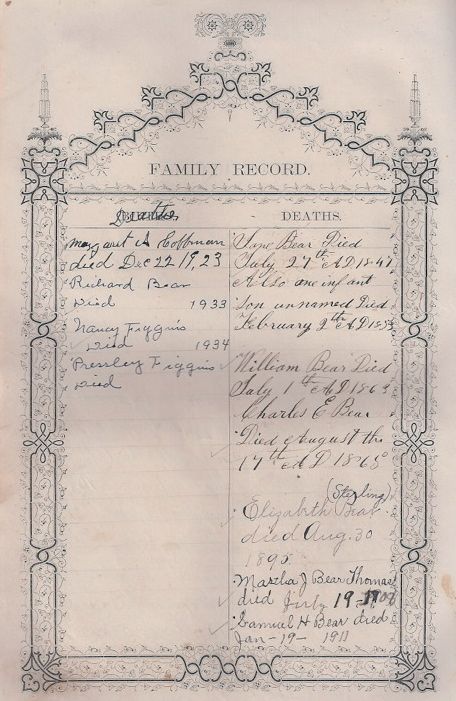 FAMILY RECORD.
Deaths
DEATHS.
Margaret A Coffman
died Dec 22 19,23
Richard Bear
Died 1933
Nancy Figgins
Died 1934
Pressley Figgins
Died
Jane Bear Died
July 27th AD 1847
Also one infant
Son unnamed Died
February 9th AD
William Bear Died
July 1th AD 1863
Charles E Bear
Died August the
17th AD 1865
(Sterling)
Elizabeth Bear
died Aug. 30
1895.
Martha J Bear Thomas
died July 19-
Samuel H Bear died
Jan-19- 1911